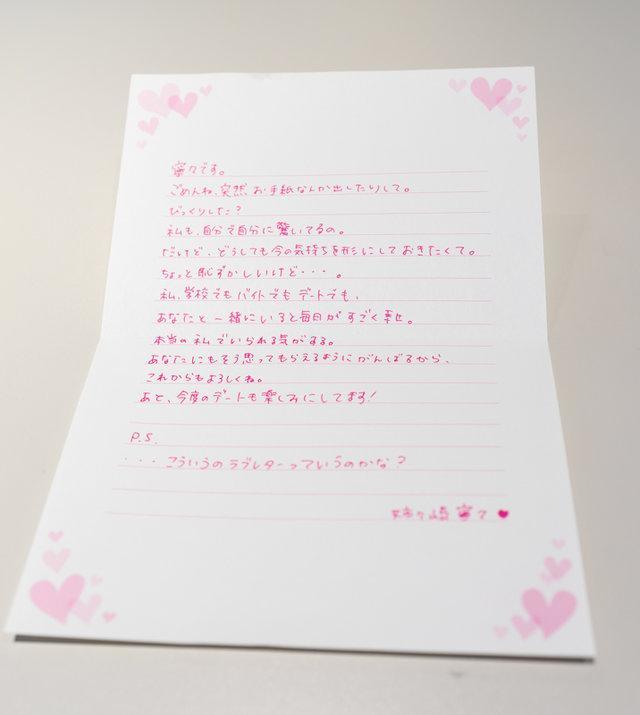 寧々です。
ごめんね、突然お手紙なんか出したりして。
びっくりした？
私も、自分で自分に驚いてるの。
だけど、どうしても今の気持ちを形にしておきたくて。
ちょっと恥ずかしいけど・・・。
私、学校でもバイトでもデートでも、
あなたと一緒にいると毎日がすごく幸せ。
本当の私でいられる気がする。
あなたにもそう思ってもらえるようにがんばるから、
これからもよろしくね。
あと、今度のデートも楽しみにしてます！
P.S.
・・・こういうのラブレターっていうのかな？
姉ヶ崎寧々♥